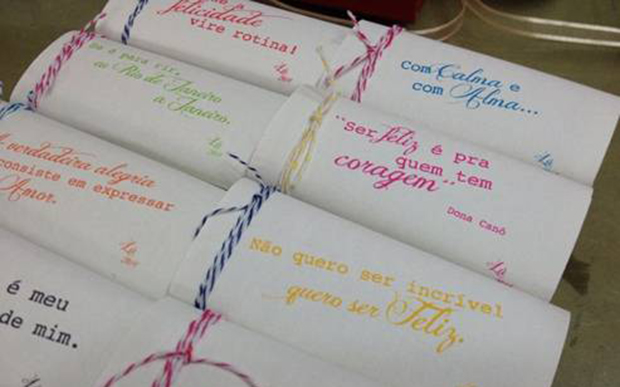 felicidade
vire rotina!
Com Calma e
com Alma...
ao Rio de Janeiro
a Janeiro.
"Ser feliz é pra
quem tem
coragem"
Dona Canô
A verdadeira alegria
consiste em expressar
Amor.
Não quero ser incrível
quero ser Feliz.
é meu
de mim.